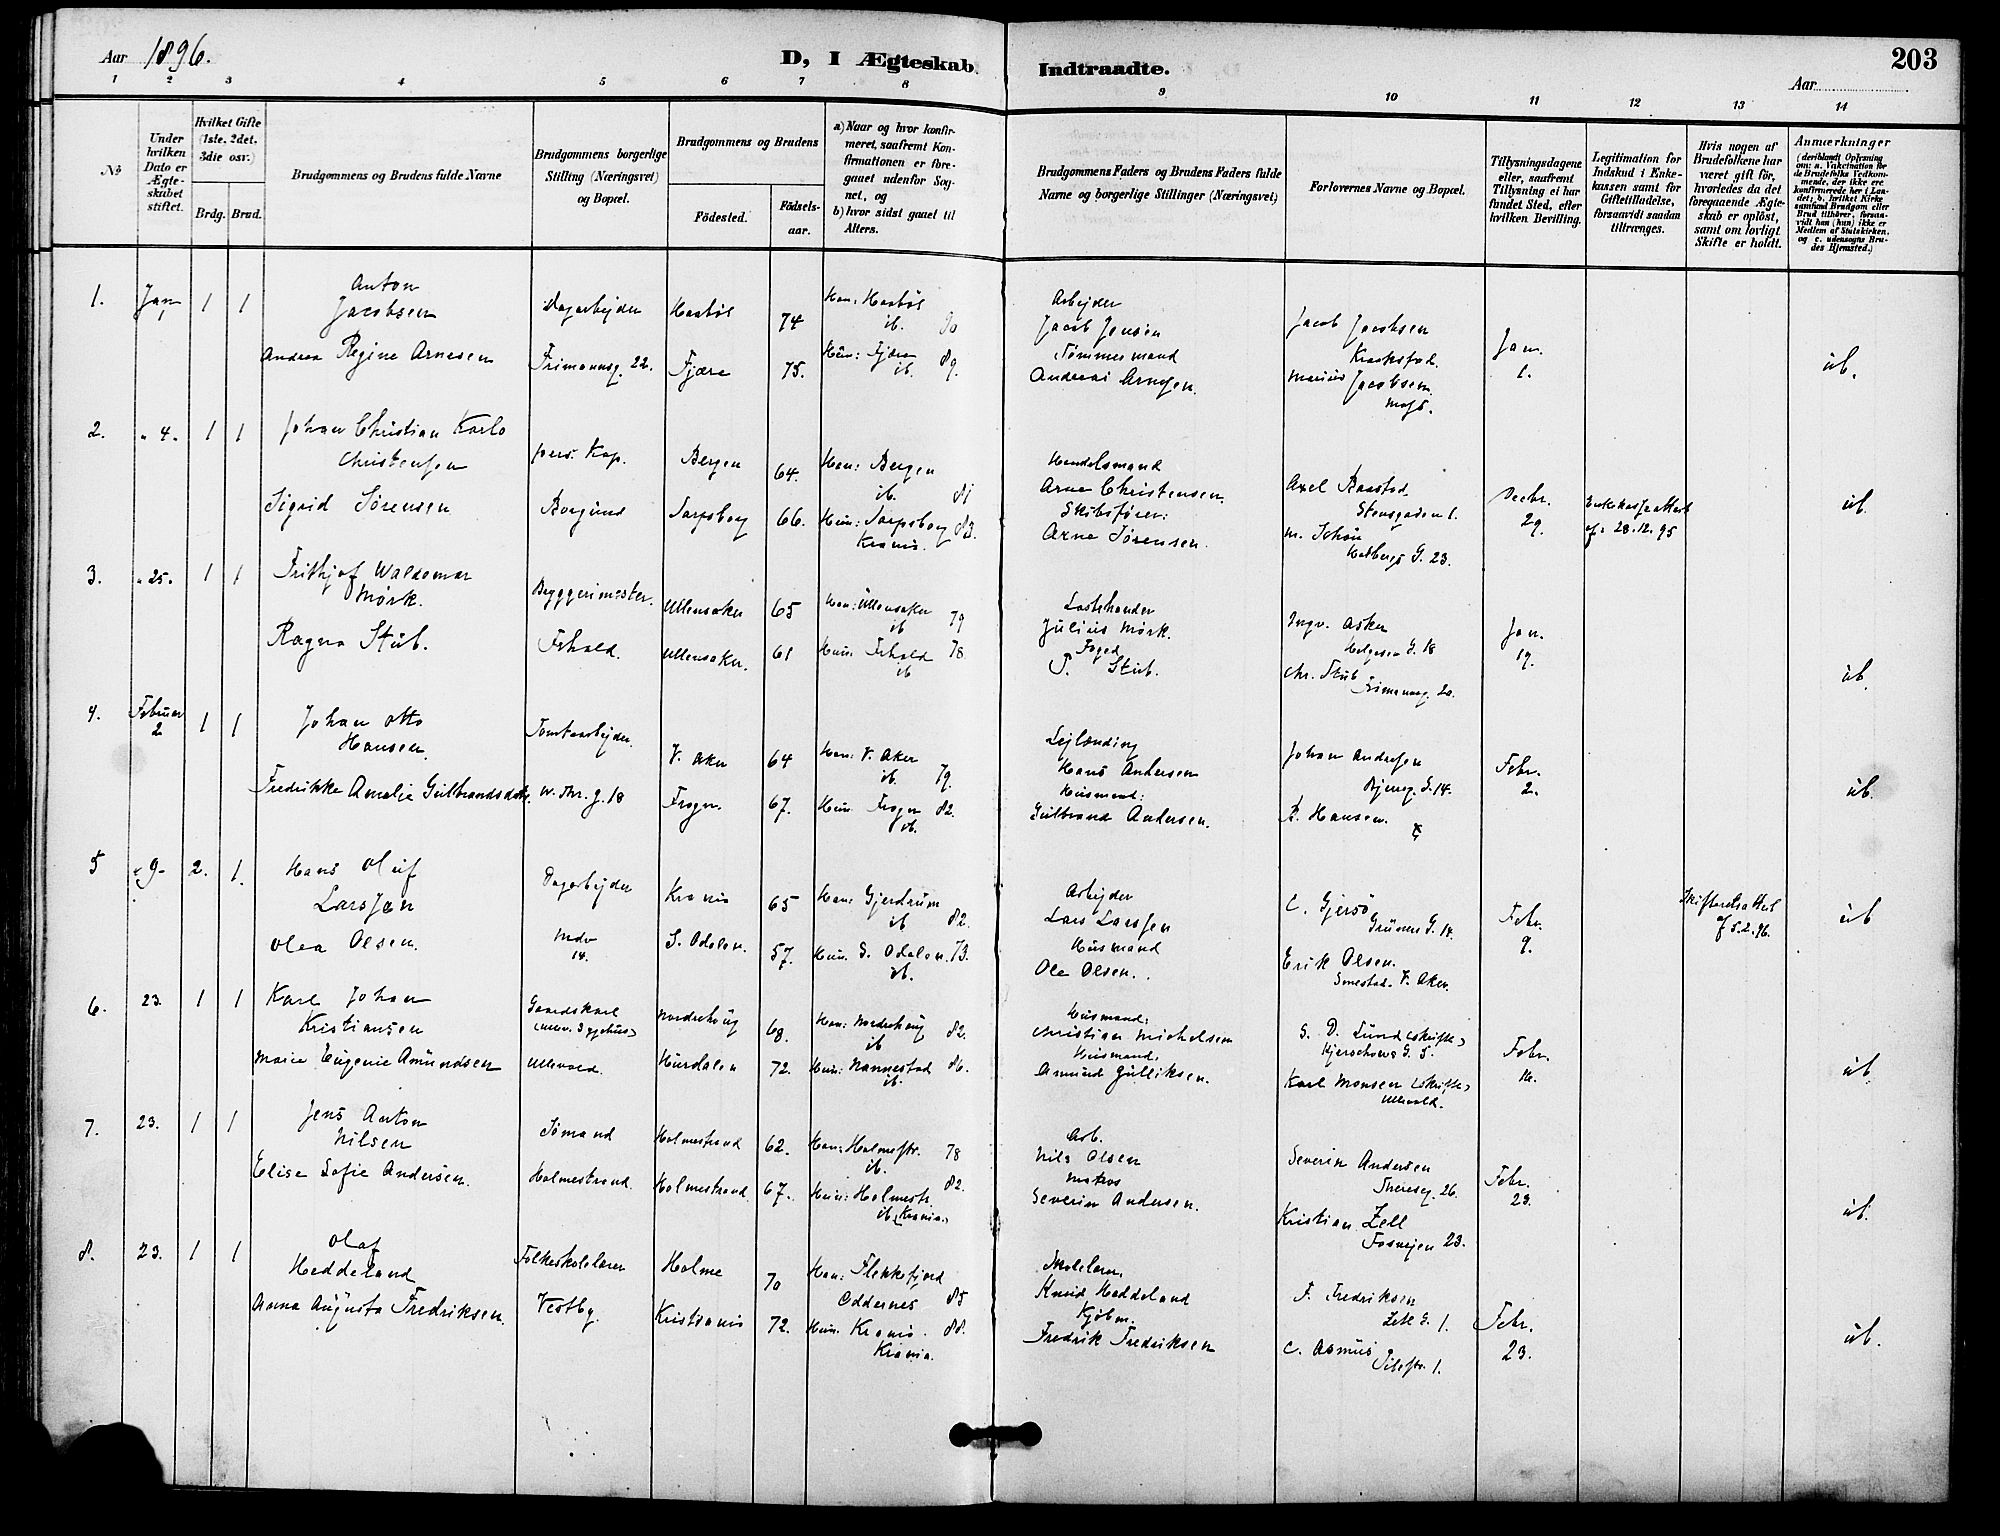 Aar 1896.
D, I Ægteskab
Indtraadte.
203
Aar
1 2 3 4 5 6 7 8 9 10 11 12 13 14
No
Under hvilken Dato er Ægteskabet stiftet.
Hvilket Gifte (1ste, 2det, 3die osv.)
Brdg. Brud.
Brudgommens og Brudens fulde Navne
Brudgommens borgerlige Stilling (Næringsvei) og Bopæl.
Brudgommens og Brudens
Fødested.
Fødselsaar.
a) Naar og hvor konfirmeret, saafremt Konfirmationen er foregaaet udenfor Sognet, og
b) hvor sidst gaaet til Alters.
Brudgommens Faders og Brudens Faders fulde Navne og borgerlige Stillinger (Næringsvei)
Forlovernes Navne og Bopæl.
Tillysningsdagene eller, saafremt Tillysning ei har fundet Sted, efter hvilken Bevilling.
Legitimation for Indskud i Enkekassen samt for Giftetilladelse, forsaavidt saadan tiltrænges.
Hvis nogen af Brudefolkene har været gift før, hvorledes da det foregaaende Ægteskab er opløst, samt om lovligt Skifte er holdt.
Anmærkninger
(deriblandt Oplysning om: a. Vakcination for de Brudefolks Vedkommende, der ikke ere konfirmerede her i Landet; b. hvilket Kirkesamfund Brudgom eller Brud tilhører, forsaavidt han (hun) ikke er Medlem af Statskirken, og c. udensogns Brudes Hjemsted.)
1. Jan 1 1 1
Anton Jacobsen
Dagarbejder Hastøl 74
Han: Hastøl ib. 90
Arbejder Jacob Jensen
Jacob Jacobsen Krakstad.
Jan. 1.
ub.
Andrea Regine Arnesen
Frimannsg. 22. Fjære 75.
Hun: Fjære ib. 89.
Tømmermand Andreas Arnesen
Marius Jacobsen. Moss.
2. " 4. 1 1
Johan Christian Karlo Christensen
pers. Kap. Bergen 64.
Han: Bergen ib. 81
Handelsmand Arne Christensen.
Axel Raastad Stensgaden 1.
Decbr. 29.
Enkekasseattest af 28.12.95
ub.
Sigrid Sørensen
Borgund Sarpsborg 66.
Hun: Sarpsborg 83. Krania.
Skibsfører: Arne Sørensen.
M. Schou Holbergs G. 23.
3. " 25. 1 1
Frithjof Waldemar Mørk.
Bryggerimester. Ullensaker 65
Han: Ullensaker ib 79
Lastehander Julius Mørk.
Ingv. Asker Helgesens G. 18
Jan. 19.
ub.
Ragna Stub.
Frhald. Ullensaker. 61
Hun: Frhald 78. ib
Foged P. Stub.
Chr. Stub Frimannsg. 20.
4. Februar 2 1 1
Johan Otto Hansen.
Tomtearbejder. V. Aker 64
Han: V. Aker ib. 79.
Lejlænding Hans Andersen
Johan Andresen Bjerreg. G. 14.
Febr. 2.
ub.
Fredrikke Amalie Gulbrandsdatr.
W. Thr. g. 18 Frogn. 67.
Hun: Frogn 82. ib.
Husmand: Gulbrand Andersen.
K. Hansen.
5 " 9. 2. 1.
Hans Oluf Larssen
Dagarbejder Krania 65
Han: Gjerdrum ib 82.
Arbejder Lars Larssen
C. Gjersø Grüners G. 14.
Febr. 9.
Skifteretsattest af 5.2.96.
ub
Olea Olsen.
Mdv 14. S. Odalen. 57.
Hun: S. Odalen. 73. ib.
Husmand Ole Olsen.
Erik Olsen. Smestad. V. Aker.
6. 23. 1 1
Karl Johan Kristiansen
Gaardskarl (Ullev. Sygehus) Norderhoug 68.
Han: Norderhoug ib 82.
Husmand: Christian Michelsen
S. D. Lund (skriftl.) Kjerschows G. 5.
Febr. 16.
ub.
Marie Eugenie Amundsen
Ullevold. Hurdalen 72.
Hun: Nannestad 86. ib.
Husmand: Amund Gulliksen.
Karl Monsen (skriftl.) Ullevold.
7. 23. 1 1
Jens Anton Nilsen
Sømand Holmestrand 62.
Han: Holmestr. 78 ib.
Arb. Nils Olsen
Severin Andersen Theresesg. 26.
Febr. 23.
ub.
Elise Sofie Andersen.
Holmestrand. Holmestrand 67.
Hun: Holmestr. 82. ib. (Krania.)
Matros Severin Andersen.
Kristian Zell Fosvejen 23.
8. 23. 1 1
Olaf Heddeland
Folkeskolelærer Holme 70
Han: Flekkefjord Oddernes 85
Skolelærer. Knud Heddeland
F. Fredriksen Lek G. 1.
Febr. 23.
ub.
Anna Augusta Fredriksen.
Vestby. Kristiania 72.
Hun: Krania. 88. Krania.
Kjøbm. Fredrik Fredriksen
C. Asmus Pilestr. 1.